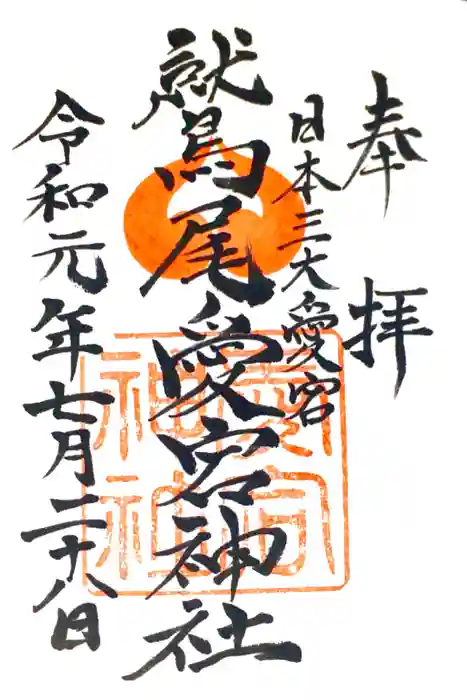 奉拝
日本三大愛宕
鷲尾愛宕神社
令和元年七月二十八日
愛宕
神社